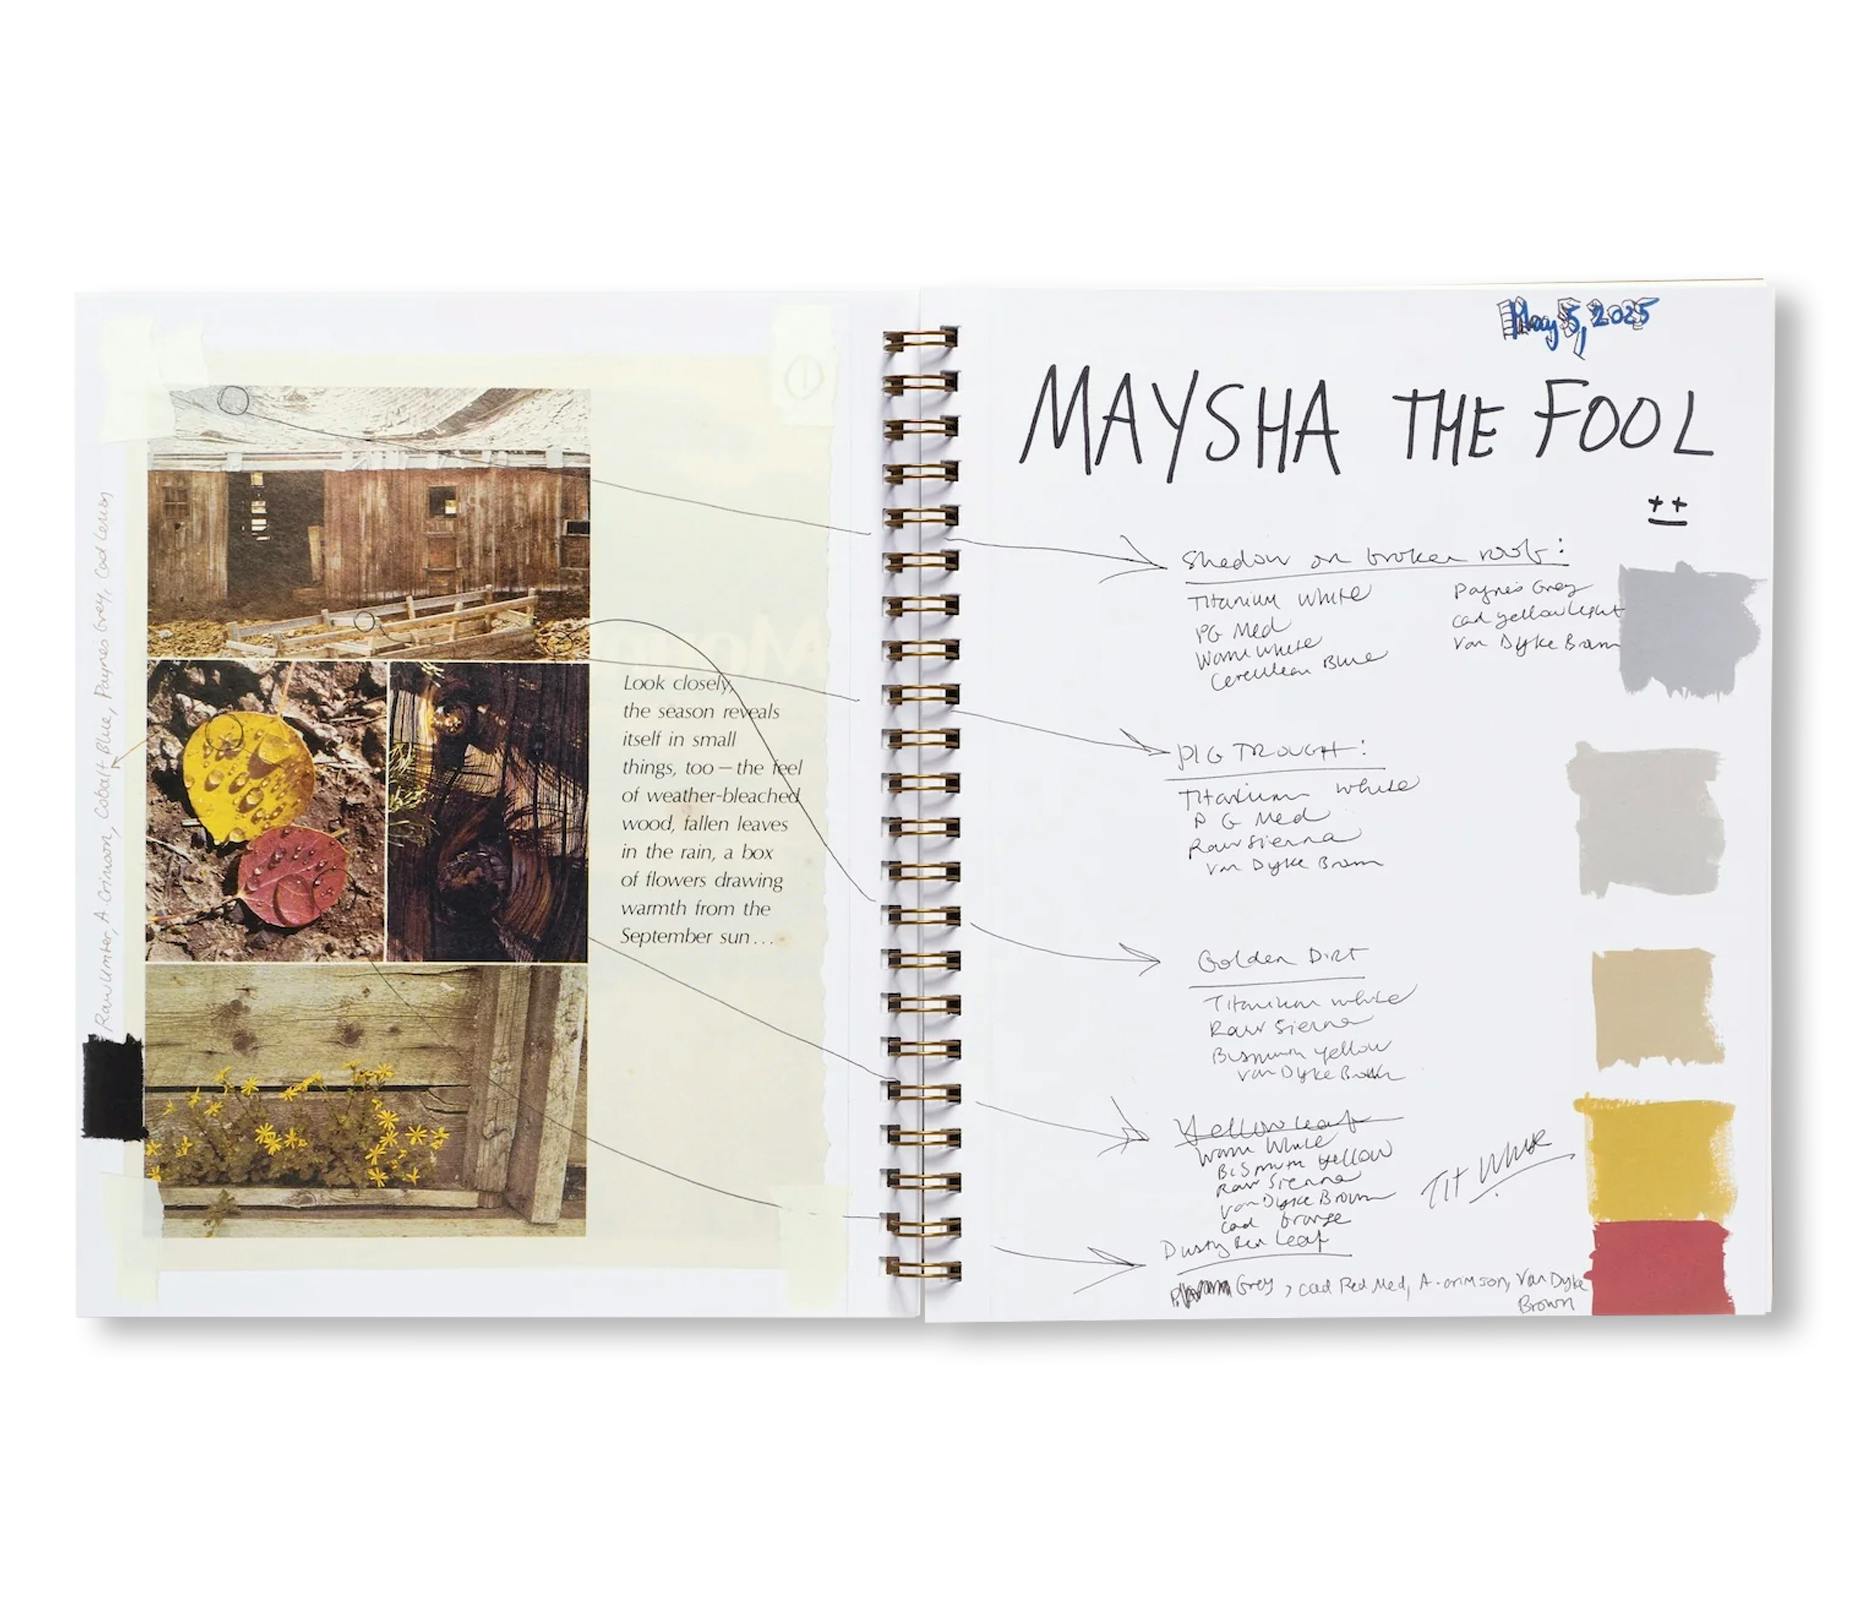 Raw Umber, A. Crimson, Cobalt Blue, Payne's Grey, Cad Lemon
1
Look closely,
the season reveals
itself in small
things, too — the feel
of weather-bleached
wood, fallen leaves
in the rain, a box
of flowers drawing
warmth from the
September sun...
May 5, 2025
MAYSHA THE FOOL
Shadow on broken roof:
Titanium White
PG Med
Warm White
Cerulean Blue
Payne's Grey
Cad yellow light
Van Dyke Brown
PIG TROUGH:
Titanium White
P G Med
Raw Sienna
Van Dyke Brown
Golden Dirt
Titanium White
Raw Sienna
Bismuth Yellow
Van Dyke Brown
Yellow Leaf
Warm White
Bismuth Yellow
Raw Sienna
Van Dyke Brown
Cad Orange
TIT White
Dusty Red Leaf
Grey, Cad Red Med, A. crimson, Van Dyke
Brown